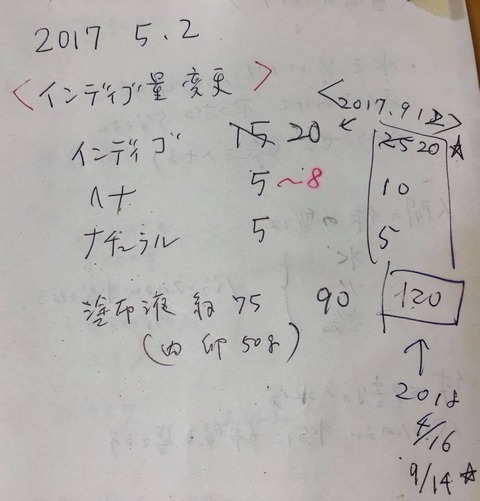 2017 5.2
<インディゴ量変更>
<2017.9 12>
インディゴ 15 20 25 20 ☆
ヘナ 5 〜8 10
ナチュラル 5 5
塗布液 約 75 90 120
50g)
↑
2018
4/16
9/14 ☆